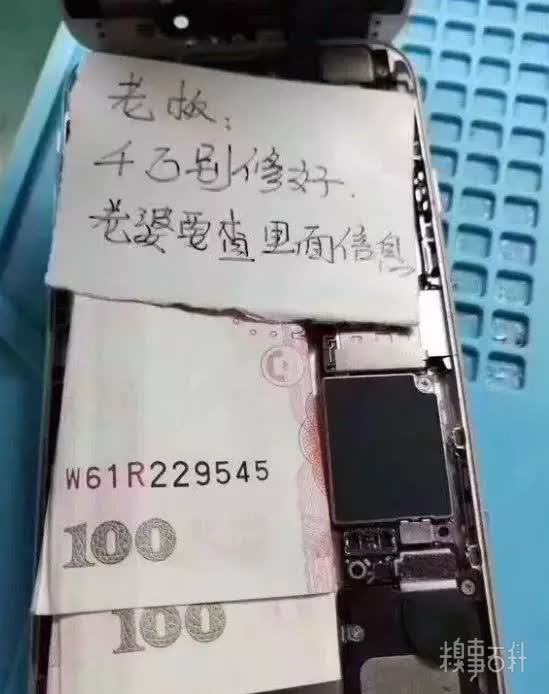 老板：
千万别修好.
老婆要查里面信息
W61R229545
100
100
糗事百科